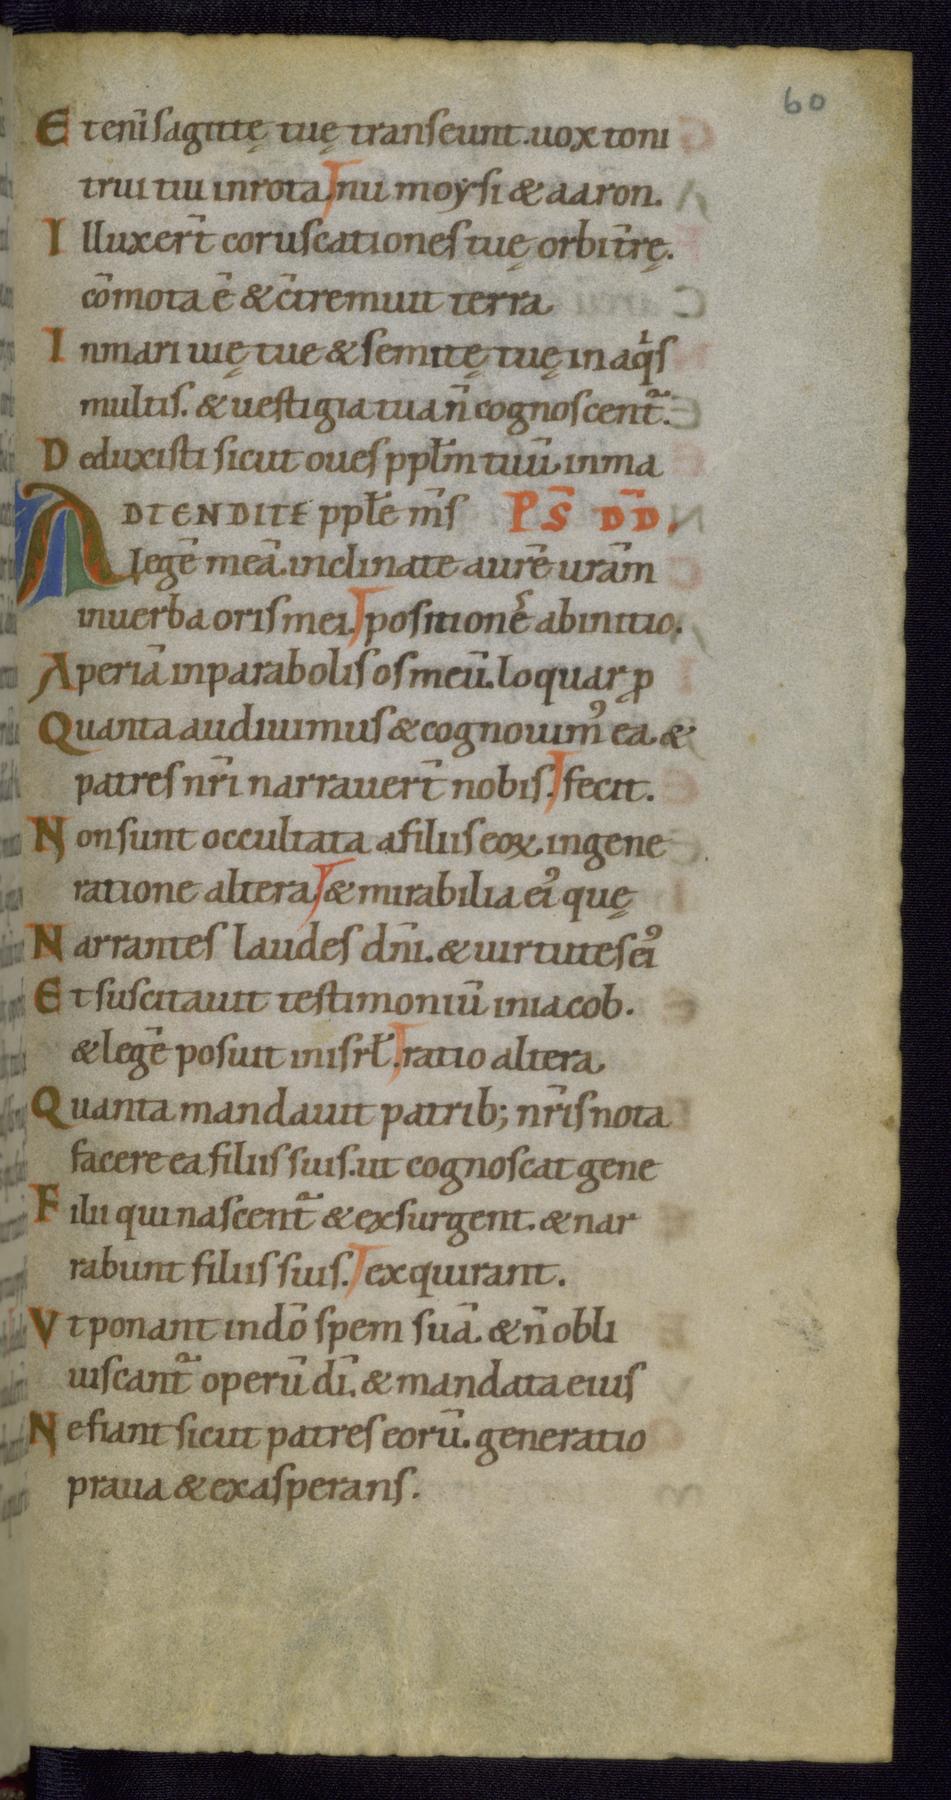 60
Etenī sagittę tuę transeunt. uox toni
trui tui in rota. nu moẏsi & aaron.
Illuxer̄t coruscationes tuę orbi tr̄ę.
cōmota ē & c̄tremuit terra
In mari uię tue & semitę tuę in aq͛s
multis. & uestigia tua n̄ cognoscent᷑.
Deduxisti sicut oues ppl̄m tuū. in ma
ADTENDITE ppl̄e m̄s PS̄ DD̄.
legē meā. inclinate aurē urām
in uerba oris mei. positionē abinitio.
Aperiā in parabolis os meū. loquar ꝓ
Quanta audiuimus & cognouimꝰ ea. &
patres nr̄i narrauer̄t nobis. fecit.
Non sunt occultata a filiis eoꝝ. in gene
ratione altera. & mirabilia eiꝰ quę
Narrantes laudes dn̄i. & uirtutes eiꝰ
Et suscitauit testimoniū in iacob.
& legē posuit in isrł. ratio altera.
Quanta mandauit patrib; nr̄is nota
facere ea filiis suis. ut cognoscat gene
Filii qui nascent᷑ & exsurgent. & nar
rabunt filiis suis. exquirant.
Vt ponant in dō spem suā. & n̄ obli
uiscant᷑ operū dī. & mandata eius
Ne fiant sicut patres eorū. generatio
praua & exasperans.